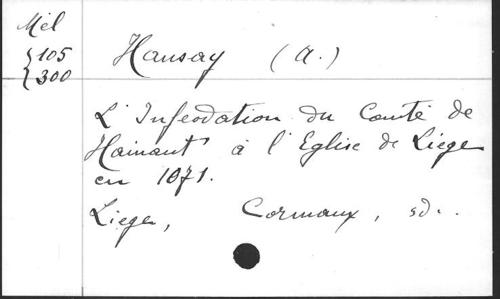 Mél
{105
{300
Hansay (A.)
L'Infeodation du Comté de
Hainaut à l'Eglise de Liège
en 1071.
Liege, Cormaux, sd..